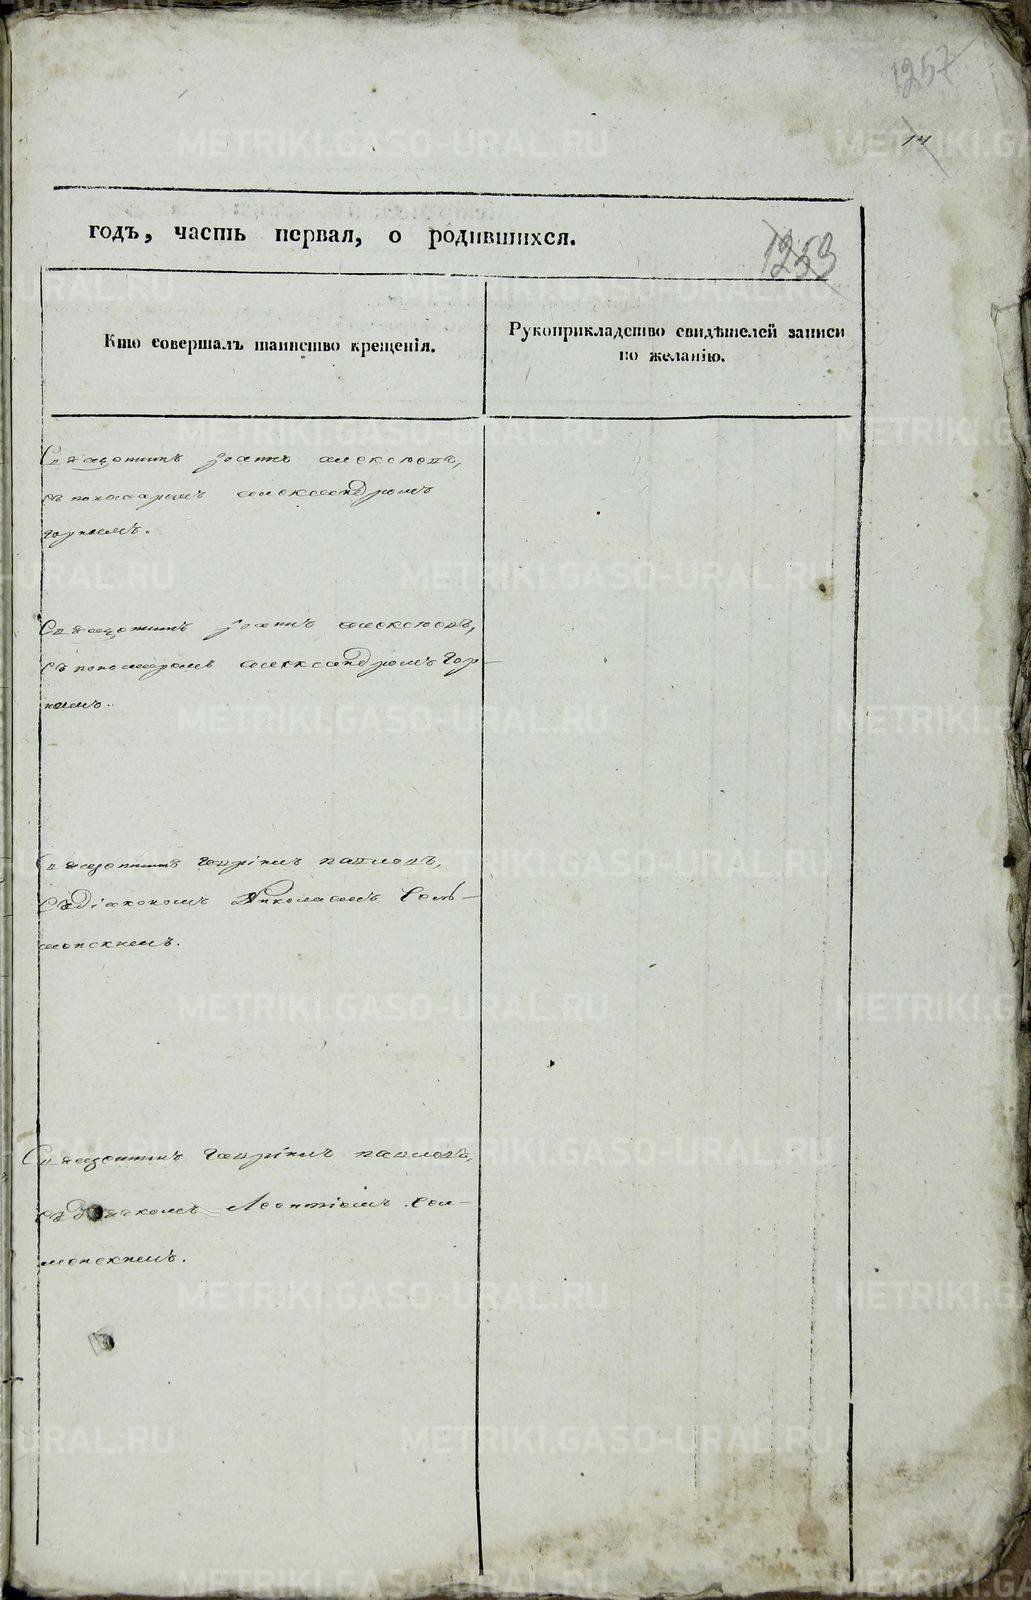 1257
14
годъ, часть первая, о родившихся.
1253
Кто совершалъ таинство крещенія.
Рукоприкладство свидѣтелей записи
по желанію.
Священникъ Іоаннъ Алексѣевъ,
съ пономаремъ Александромъ
Горнымъ.
Священникъ Іоаннъ Алексѣевъ,
съ пономаремъ Александромъ Гор-
нымъ.
Священникъ Гавріилъ Павловъ,
съ діакономъ Николаемъ
Священникъ Гавріилъ Павловъ,
съ Леонтіемъ
METRIKI.GASO-URAL.RU